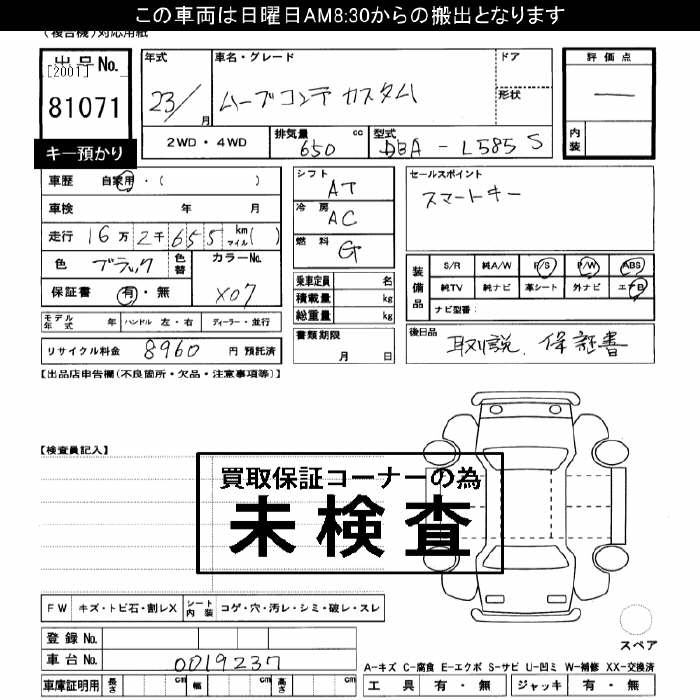 この車両は日曜日AM8:30からの搬出となります
(複合機)対応用紙
出品No.
[2001]
81071
キー預かり
年式 23/ 月
車名・グレード ムーブコンテ カスタム
ドア
形状
評価点
—
内装
2WD・4WD
排気量 650 cc
型式 DBA - L585S
車歴 自家用・( )
車検 年 月
走行 16万2千655 km マイル( )
色 ブラック 色替
カラーNo. X07
保証書 有・無
モデル年式 年 ハンドル 左・右 ディーラー・並行
リサイクル料金 8960 円 預託済
シフト AT
冷房 AC
燃料 G
乗車定員 名
積載量 kg
総重量 kg
書類期限
月 日
セールスポイント
スマートキー
装備品
S/R 純A/W P/S P/W ABS
純TV 純ナビ 革シート 外ナビ エアB
ナビ型番:
後日品
取説、保証書
【出品店申告欄(不良箇所・欠品・注意事項等)】
【検査員記入】
買取保証コーナーの為
未検査
FW キズ・トビ石・割レX シート内装 コゲ・穴・汚レ・シミ・破レ・スレ
登録No.
車台No. 0019237
車庫証明用 長さ cm 幅 cm 高さ cm
スペア
A-キズ C-腐食 E-エクボ S-サビ U-凹ミ W-補修 XX-交換済
工具 有・無 ジャッキ 有・無